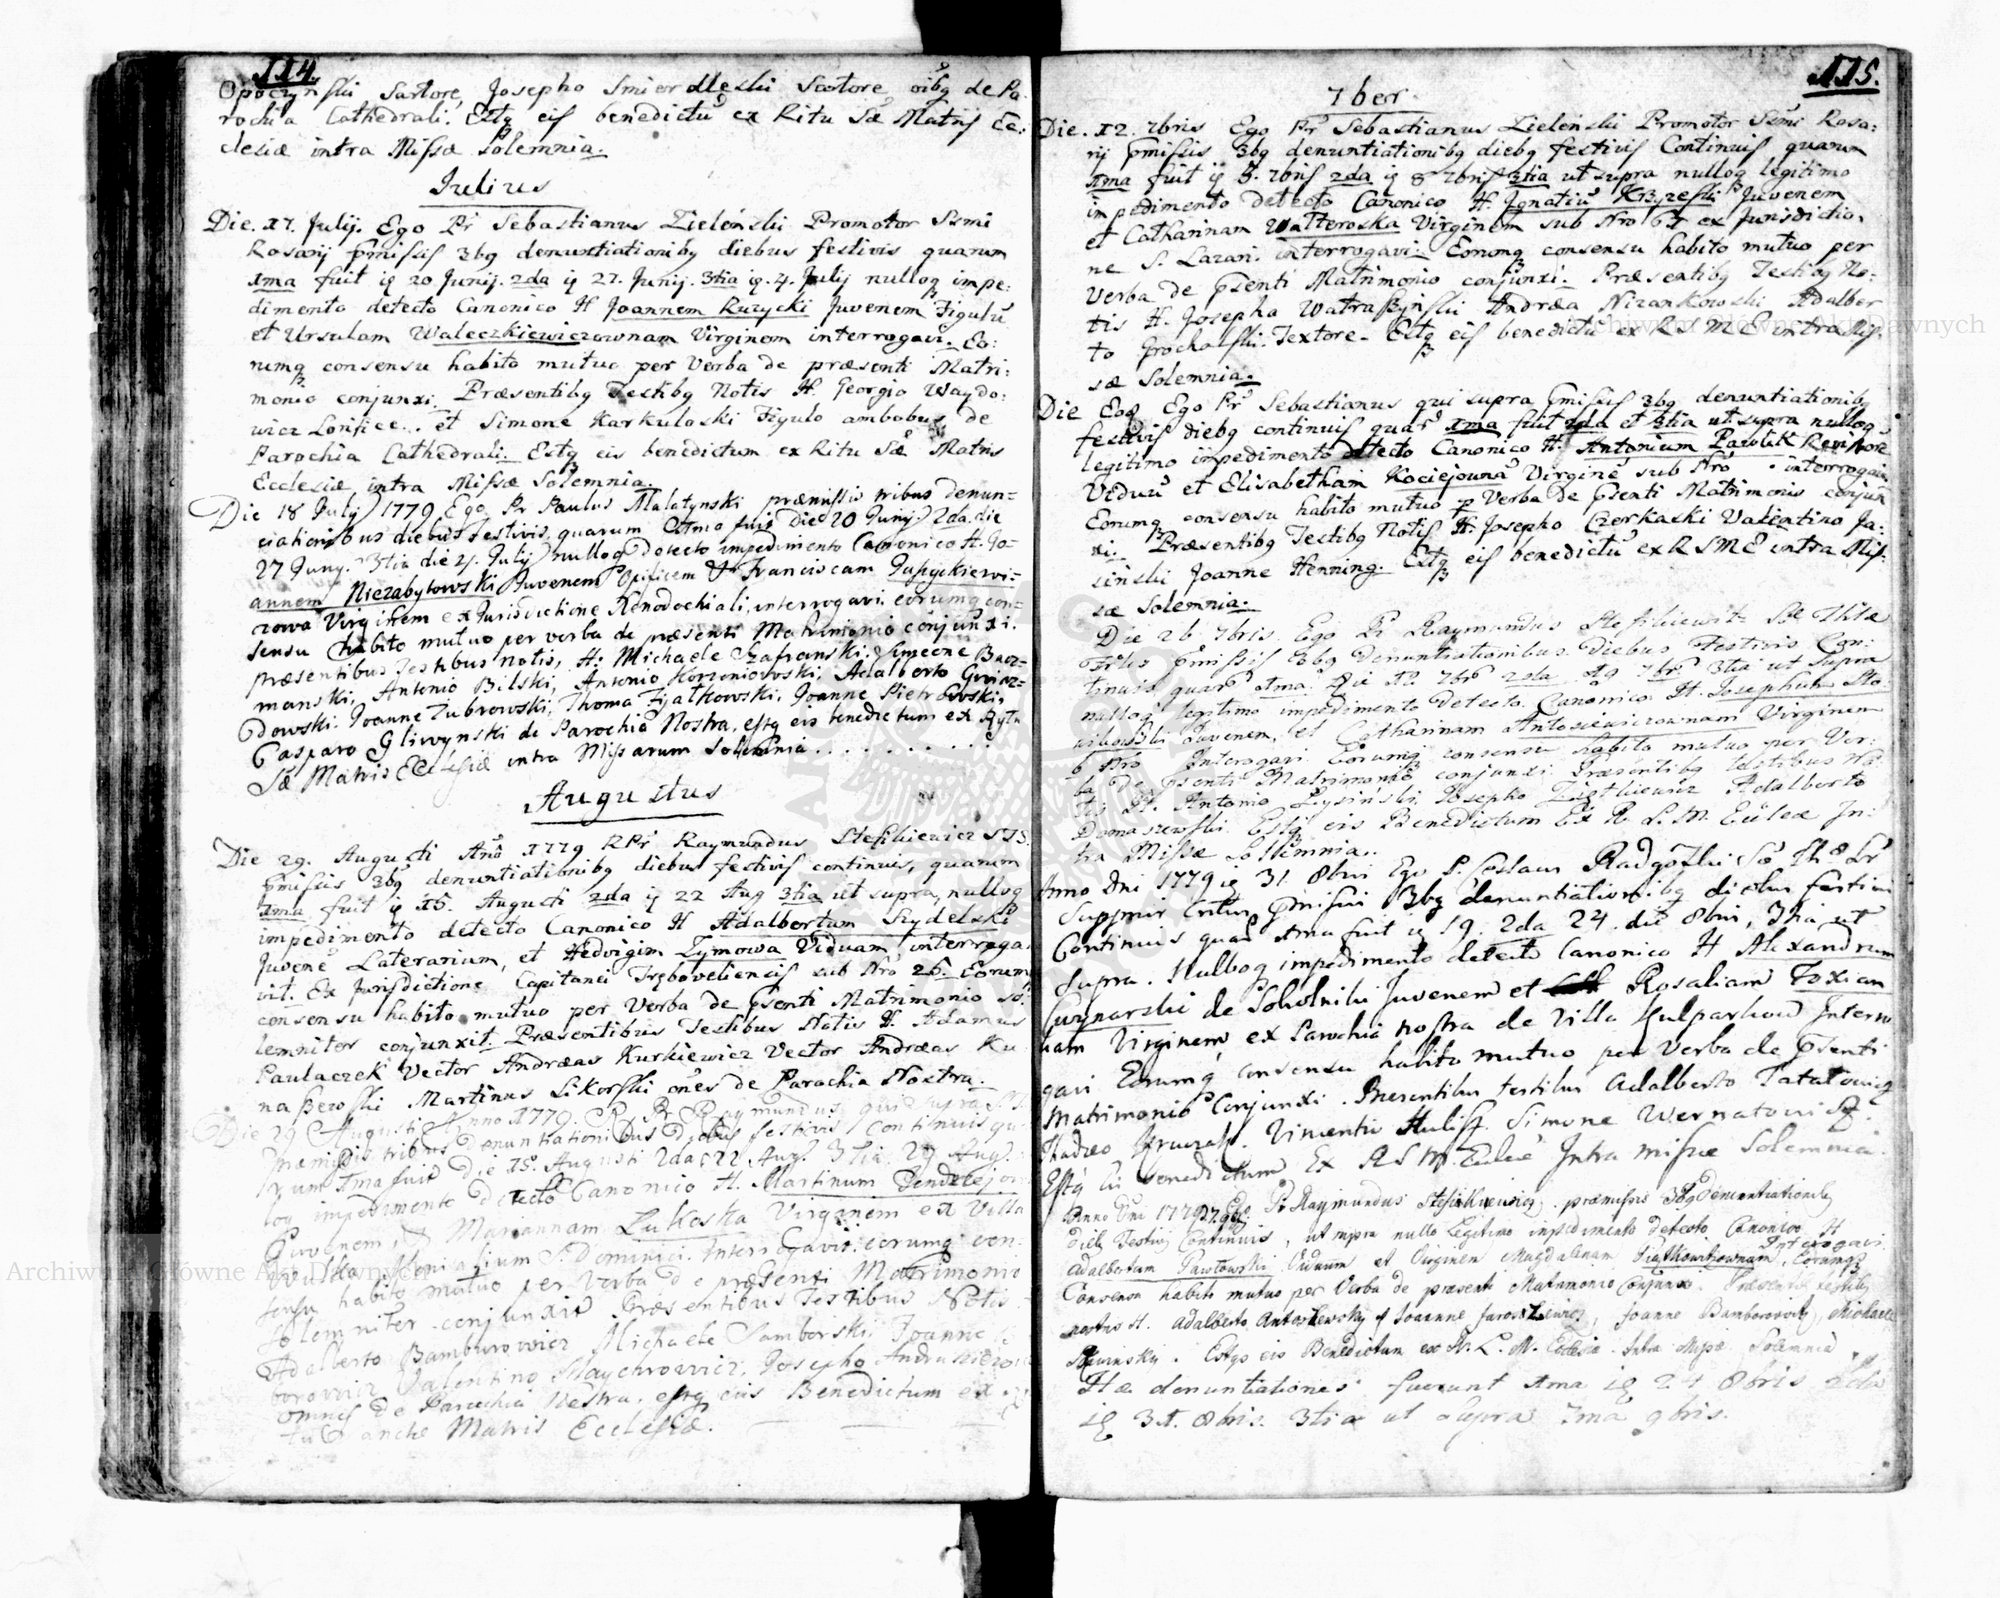 114.
Opoczyński Sartore, Josepho Smierdleski Sartore oibg de Pa
rochia Cathedrali. Estq eis benedictū ex Ritu Sæ Matris Ec:
clesiæ intra Missæ Solemnia.
Julius
Die. 17. Julij. Ego Pr Sebastianus Zielenski Promotor Ssmi
Rosarij pmissis 3bg denuntiationibg diebus festivis quarum
1ma fuit ig 20 Junij. 2da ig 27. Junij. 3tia ig. 4. July nulloq impe:
dimento detecto Canonico H Joannem Kurzycki Juvenem Figulū
et Ursulam Waleczkiewiczownam Virginem interrogavi. Eo:
rumq consensu habito mutuo per Verba de præsenti Matri:
monio conjunxi. Præsentibg Testibg Notis H. Georgio Waydo:
wicz et Simone Karkuloski Figulo ambobus de
Parochia Cathedrali. Estq eis benedictum ex Ritu Sæ Matris
Ecclesiæ intra Missæ Solemnia.
Die 18 July 1779 Ego Pr Paulus Malatynski præmissis tribus denun=
ciationibus diebus festivis, quarum 1ma fuit die 20 Junij 2da die
27 Juny. 3tia die 4. July nulloq detecto impedimento Canonico H. Jo=
annem Niezabytowski Juvenem Opificem & Franciscam
zowa Virginem ex Jurisdictione Xenodochiali, interrogavi eorumq con=
sensu habito mutuo per verba de præsenti Matrimonio conjunxi.
præsentibus Testibus notis, H: Michaele Szafranski. Simeone Bacz=
manski, Antonio Bilski, Antonio Korzoniowski, Adalberto
dowski. Joanne Zubrowski, Thoma Fijalkowski, Joanne Pietrowski,
Casparo Gliwynski de Parochia Nostra, estq eis benedictum ex Rytu
Sæ Matris Ecclesiæ intra Missarum Solemnia . . . . . . . . . .
Augustus
Die 29. Augusti Anō 1779 RPr Raymundus Stefskiewicz STS.
pmissis 3bg denuntiationibg diebus festivis continuis, quarum
1ma fuit ig 15. Augusti 2da ig 22 Aug 3tia ut supra, nulloq
impedimento detecto Canonico H Adalbertum Szydelski
Juvenē Laterarium, et Hedvigim Zymowa Viduam interroga
vit. Ex Jurisdictione Capitanei Treboveliensis sub Nro 26. Eorum
consensu habito mutuo per Verba de psenti Matrimonio so:
lemniter conjunxit. Præsentibus Testibus Notis H. Adamus
Paulaczek Vector Andræas Kurkiewicz Vector Andræas Ku
naszewski Martinus Sikorski oēs de Parochia Nostra.
Die 29 Augusti Anno 1779. R. Pr Raymundus qui supra S.
Præmissis tribus denuntiationibus diebus festivis continuis qu
rum 1ma fuit Die 15. Augusti 2da 22 Aug. 3tia. 29 Aug.
loq impedimento detecto Canonico H. Martinum
Juvenem, & Mariannam Lukoska Virginem ex Villa
Monialium S. Dominici. Interrogavit. eorumq con
sensu habito mutuo per Verba de præsenti Matrimonio
solemniter conjunxit Præsentibus Testibus Notis
Adalberto Bamburowicz Michaele Samborski Joanne
borowicz Valentino Maychrowicz, Josepho
omnes de Parochia Nostra, estq eis Benedictum ex
Sanctæ Matris Ecclesiæ.
115.
7ber
Die. 12. 7bris Ego Pr Sebastianus Zielenski Promotor Ssmi Rosa:
rij pmissis 3bg denuntiationibg diebg festivis Continuis quarum
1ma fuit ig 5. 7bris 2da ig 8 7bris 3tia ut supra nulloq legitimo
impedimento detecto Canonico H. Ignatiū Krzeski Juvenem
et Catharinam Watteroska Virginem sub Nro 67 ex Jurisdictio:
ne S. Lazari interrogavi. Eorumq consensu habito mutuo per
Verba de psenti Matrimonio conjunxi. Præsentibg Testibg No:
tis H. Josepha Watraszynski Andræa Nizankowski Adalber
to Grochalski Textore. Estq eis benedictū ex R S M E intra Mis:
sæ Solemnia.
Die Eoq Ego Pr Sebastianus qui supra pmissis 3bg denuntiationibg
festivis diebg continuis quar 1ma fuit 2da et 3tia ut supra nulloq
legitimo impedimento detecto Canonico H. Antonium Pawlik
Viduū et Elisabetham Kociejowna Virginē sub Nro . interrogavi
Eorumq consensu habito mutuo p Verba de psenti Matrimonio conjun
xi. Præsentibg Testibg Notis H. Josepho Czerkaski Valentino Ja:
sinski Joanne Henning. Estq eis benedictū ex R S M E intra Mis:
sæ Solemnia.
Die 26 7bris. Ego Pr Raymundus Stefskiewitz Sæ Thlæ
pmissis 3bg Denuntiationibus Diebus Festivis Con:
tinuis, quarū 1ma Die 12 7br 2da 19 7br 3tia ut supra
nulloq legitimo impedimento detecto. Canonico. H. Josephum
Juvenem, et Catharinam Antosiewiczownam Virginem
Nro Interogavi Eorumq consensu habito mutuo per Ver:
ba De psenti Matrimonio conjunxi. Præsentibg testibus No
tis H. Antonio Lysinski, Josepho Adalberto
Domaszewski. Estq eis Benedictum Ex R. S. M. Eccleæ In:
tra Missæ Sollemnia..
Anno Dni 1779 ig 31. 8bris Ego P. Ceslaus Radgoski
pmissis 3bg denuntiationibg diebus festivis
Continuis quarū 1ma fuit ig 19. 2da 24. die 8bris, 3tia ut
supra. Nulloq impedimento detecto Canonico H Alexandrum
de Sokolniki Juvenem et Rosaliam Toxian
nam Virginem ex Parochia nostra de Villa Kulparkow Interro
gavi Eorumq consensu habito mutuo per Verba de psenti
Matrimonio Conjunxi. Præsentibus testibus Adalberto
Simone
Estq eis benedictum Ex R S M. Eccleæ Intra missæ Solemnia
Anno Dni 1779 Ego Pr Raymundus Stefskiewicz præmissis 3bg Denuntiationibg
dieb Festivis Continuis, ut supra nullo Legitimo impedimento detecto Canonico H
Adalbertum Pawlowski Viduum et Virginem Magdalenam Interogavi Eorumq
Consensu habito mutuo per Verba de præsenti Matrimonio Conjunxi. Præsentib testib
notis H. Adalberto Antoszewsky & Joanne Jaroszewicz, Joanne Michaele
Estqo eis Benedictum ex R. S. M. Eclesiæ. Intra Missæ Solemnia.
Hæ denuntiationes fuerunt 1ma ig 24 8bris 2da
ig 31. 8bris. 3tia ut supra 7ma 9bris.
Archiwum Główne Akt Dawnych
Archiwum Główne Akt Dawnych